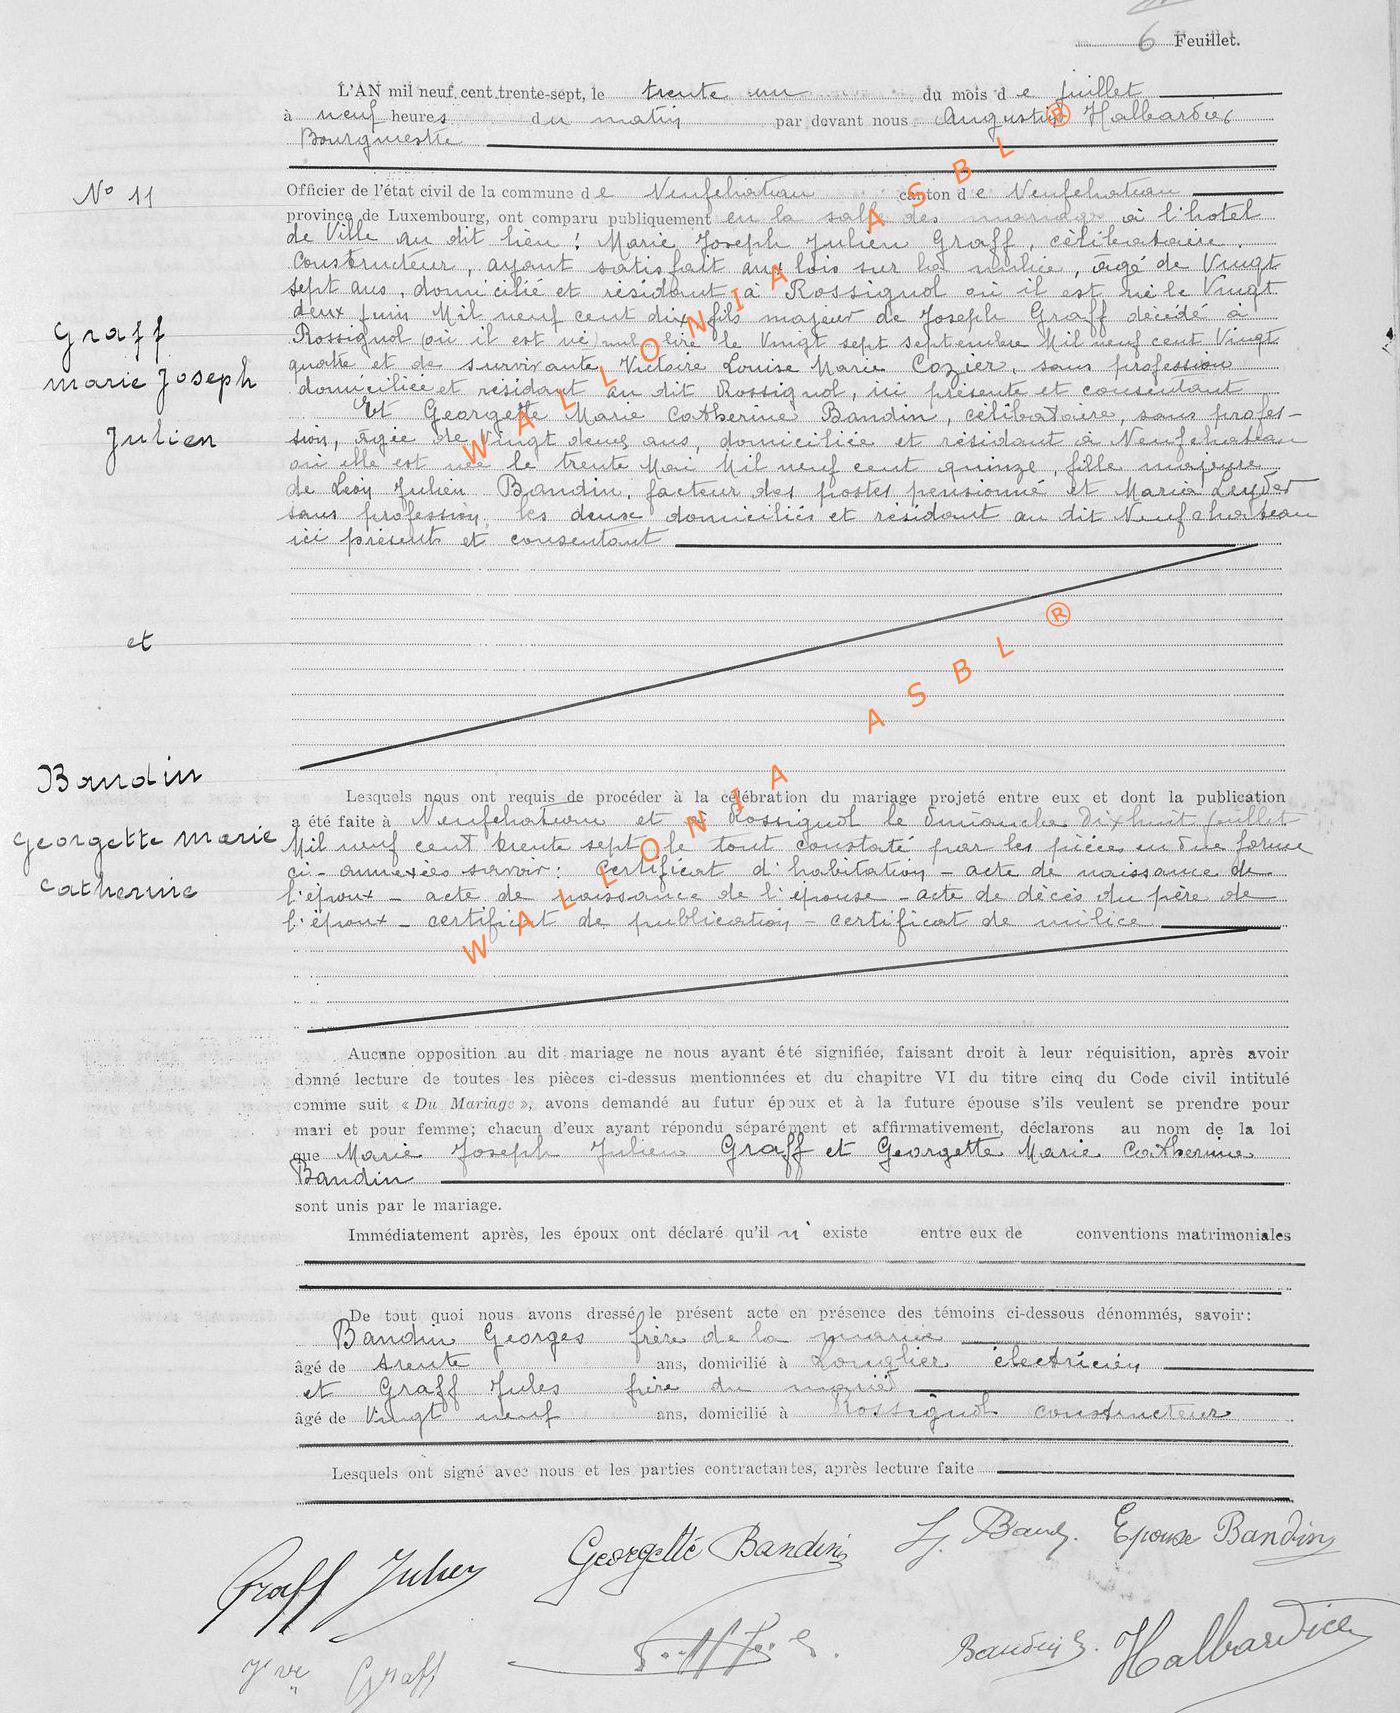 6 Feuillet.
L'AN mil neuf cent trente-sept, le trente un du mois de juillet
à neuf heures du matin par devant nous Augustin Halbardier
Bourgmestre
N° 11
Officier de l'état civil de la commune de Neufchateau canton de Neufchateau
province de Luxembourg, ont comparu publiquement en la salle des mariages à l'hotel
de Ville au dit lieu : Marie Joseph Julien Graff, célibataire,
Constructeur, ayant satisfait aux lois sur la milice, âgé de Vingt
sept ans, domicilié et résidant à Rossignol où il est né le Vingt
deux juin Mil neuf cent dix, fils majeur de Joseph Graff décédé à
Rossignol (où il est né) le Vingt sept septembre Mil neuf cent Vingt
quatre et de survivante Victoire Louise Marie Cozier, sans profession
domiciliée et résidant au dit Rossignol, ici présente et consentant
Et Georgette Marie Catherine Baudin, célibataire, sans profes-
sion, âgée de Vingt deux ans, domiciliée et résidant à Neufchateau
où elle est née le trente Mai Mil neuf cent quinze, fille majeure
de Léon Julien Baudin, facteur des postes pensionné et Maria Leyder
sans profession, les deux domiciliés et résidant au dit Neufchateau
ici présents et consentant
Graff
Marie Joseph
Julien
et
Baudin
Georgette Marie
Catherine
Lesquels nous ont requis de procéder à la célébration du mariage projeté entre eux et dont la publication
a été faite à Neufchateau et à Rossignol le dimanche dix huit juillet
Mil neuf cent trente sept le tout constaté par les pièces en due forme
ci-annexées savoir : Certificat d'habitation - acte de naissance de
l'époux - acte de naissance de l'épouse - acte de décès du père de
l'époux - certificat de publication - certificat de milice
Aucune opposition au dit mariage ne nous ayant été signifiée, faisant droit à leur réquisition, après avoir
donné lecture de toutes les pièces ci-dessus mentionnées et du chapitre VI du titre cinq du Code civil intitulé
comme suit « Du Mariage », avons demandé au futur époux et à la future épouse s'ils veulent se prendre pour
mari et pour femme; chacun d'eux ayant répondu séparément et affirmativement, déclarons au nom de la loi
que Marie Joseph Julien Graff et Georgette Marie Catherine
Baudin
sont unis par le mariage.
Immédiatement après, les époux ont déclaré qu'il n'existe entre eux de conventions matrimoniales
De tout quoi nous avons dressé le présent acte en présence des témoins ci-dessous dénommés, savoir:
Baudin Georges frère de la mariée
âgé de trente ans, domicilié à Longlier électricien
et Graff Jules frère du marié
âgé de Vingt neuf ans, domicilié à Rossignol constructeur
Lesquels ont signé avec nous et les parties contractantes, après lecture faite
Graff Julien Georgette Baudin Epouse Baudin
Graff Baudin G. Halbardier
WALLONIA ASBL ®
WALLONIA ASBL ®